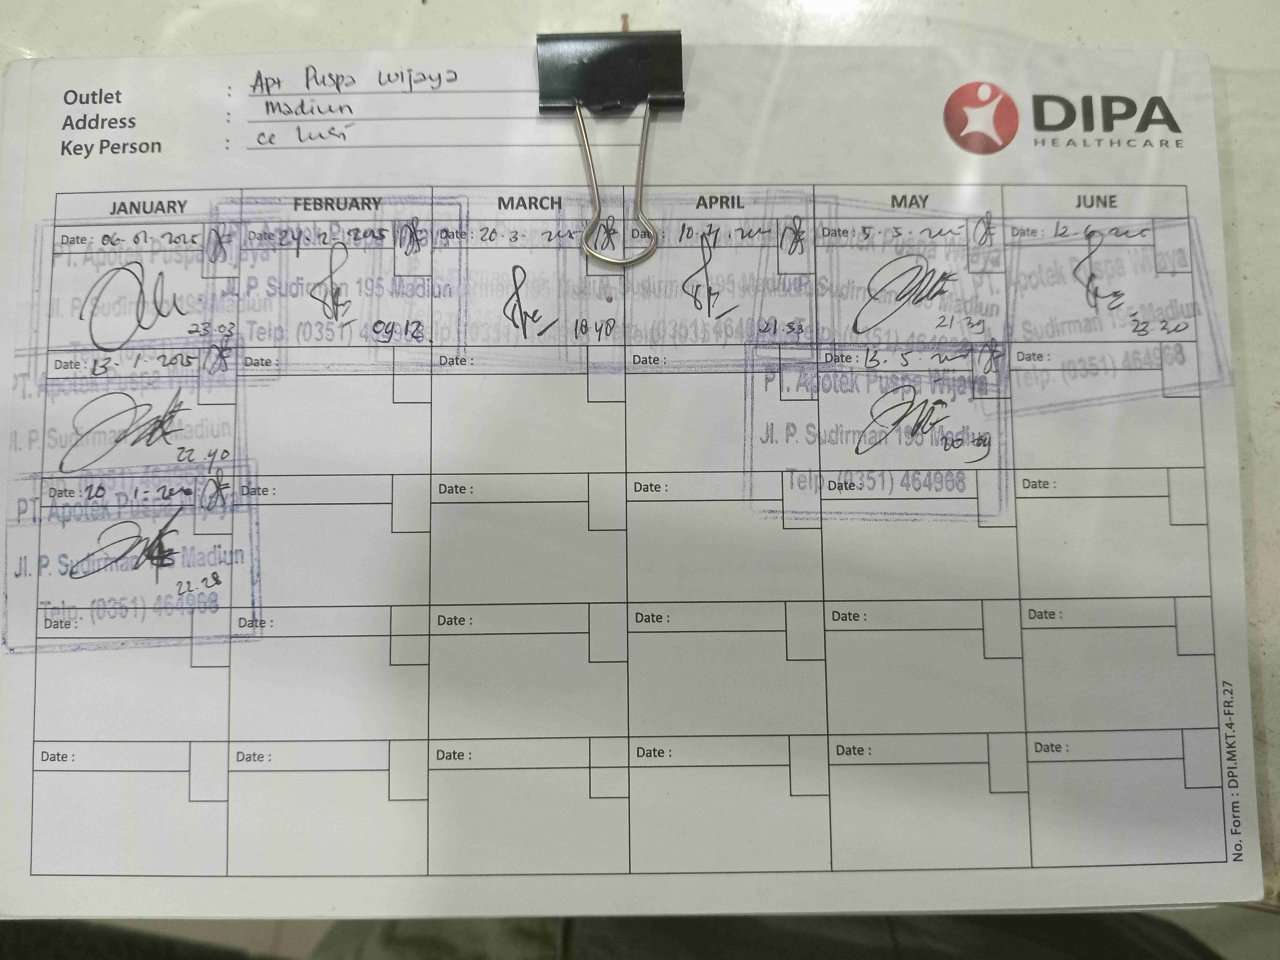 Outlet : Apt Puspa Wijaya
Address : Madiun
Key Person : ce Lusi
DIPA
HEALTHCARE
JANUARY FEBRUARY MARCH APRIL MAY JUNE
Date : 06-01-2025 Date : 24. 2. 2025 Date : 20-3- Date : 10. 4. Date : 5. 5. Date : 12-6-
PT. Apotek Puspa Wijaya
Jl. P. Sudirman 195 Madiun
Telp. (0351) 464968
23.03 09.12 18.48 21.33 21.39 23.20
Date : 13-1-2025 Date : Date : Date : Date : 13. 5. Date :
PT. Apotek Puspa Wijaya
Jl. P. Sudirman 195 Madiun
22.40
Telp. (0351) 464968
Date : 20 1- Date : Date : Date : Date : Date :
PT. Apotek Puspa Wijaya
Jl. P. Sudirman 195 Madiun
22.28
Telp. (0351) 464968
Date : Date : Date : Date : Date : Date :
Date : Date : Date : Date : Date : Date :
No. Form : DPI.MKT.4-FR.27